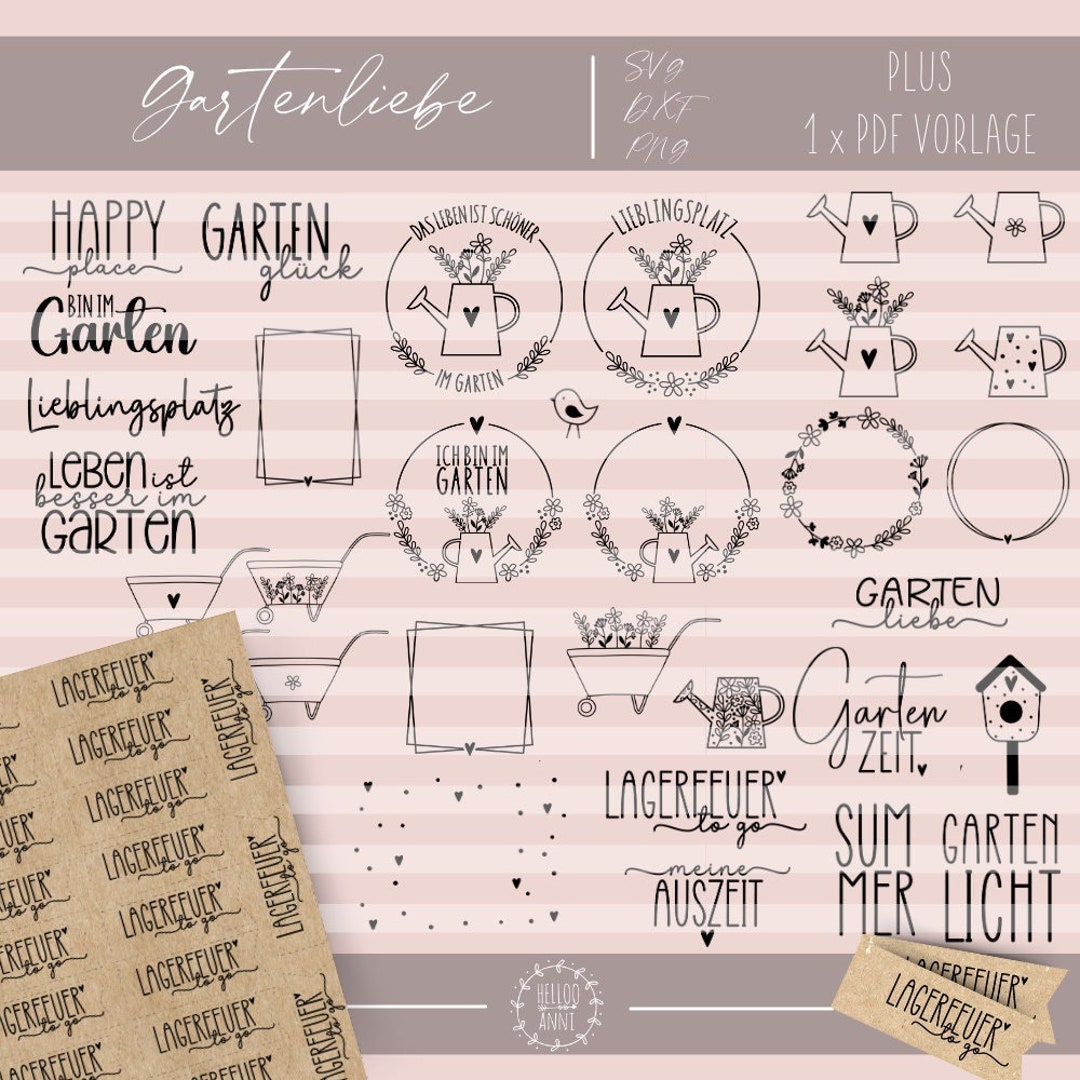 Gartenliebe
SVG
DXF
PNG
PLUS
1 x PDF VORLAGE
HAPPY
place
GARTEN
glück
DAS LEBEN IST SCHÖNER
IM GARTEN
LIEBLINGSPLATZ
BIN IM
Garten
Lieblingsplatz
LEBEN ist
besser im
GARTEN
ICH BIN IM
GARTEN
GARTEN
liebe
Garten
ZEIT
LAGERFEUER
to go
meine
AUSZEIT
SUM
MER
GARTEN
LICHT
LAGERFEUER
to go
LAGERFEUER
to go
LAGERFEUER
to go
LAGERFEUER
to go
LAGERFEUER
to go
LAGERFEUER
to go
LAGERFEUER
to go
LAGERFEUER
to go
LAGERFEUER
to go
LAGERFEUER
to go
LAGERFEUER
to go
HELLOO
ANNI
LAGERFEUER
LAGERFEUER
to go